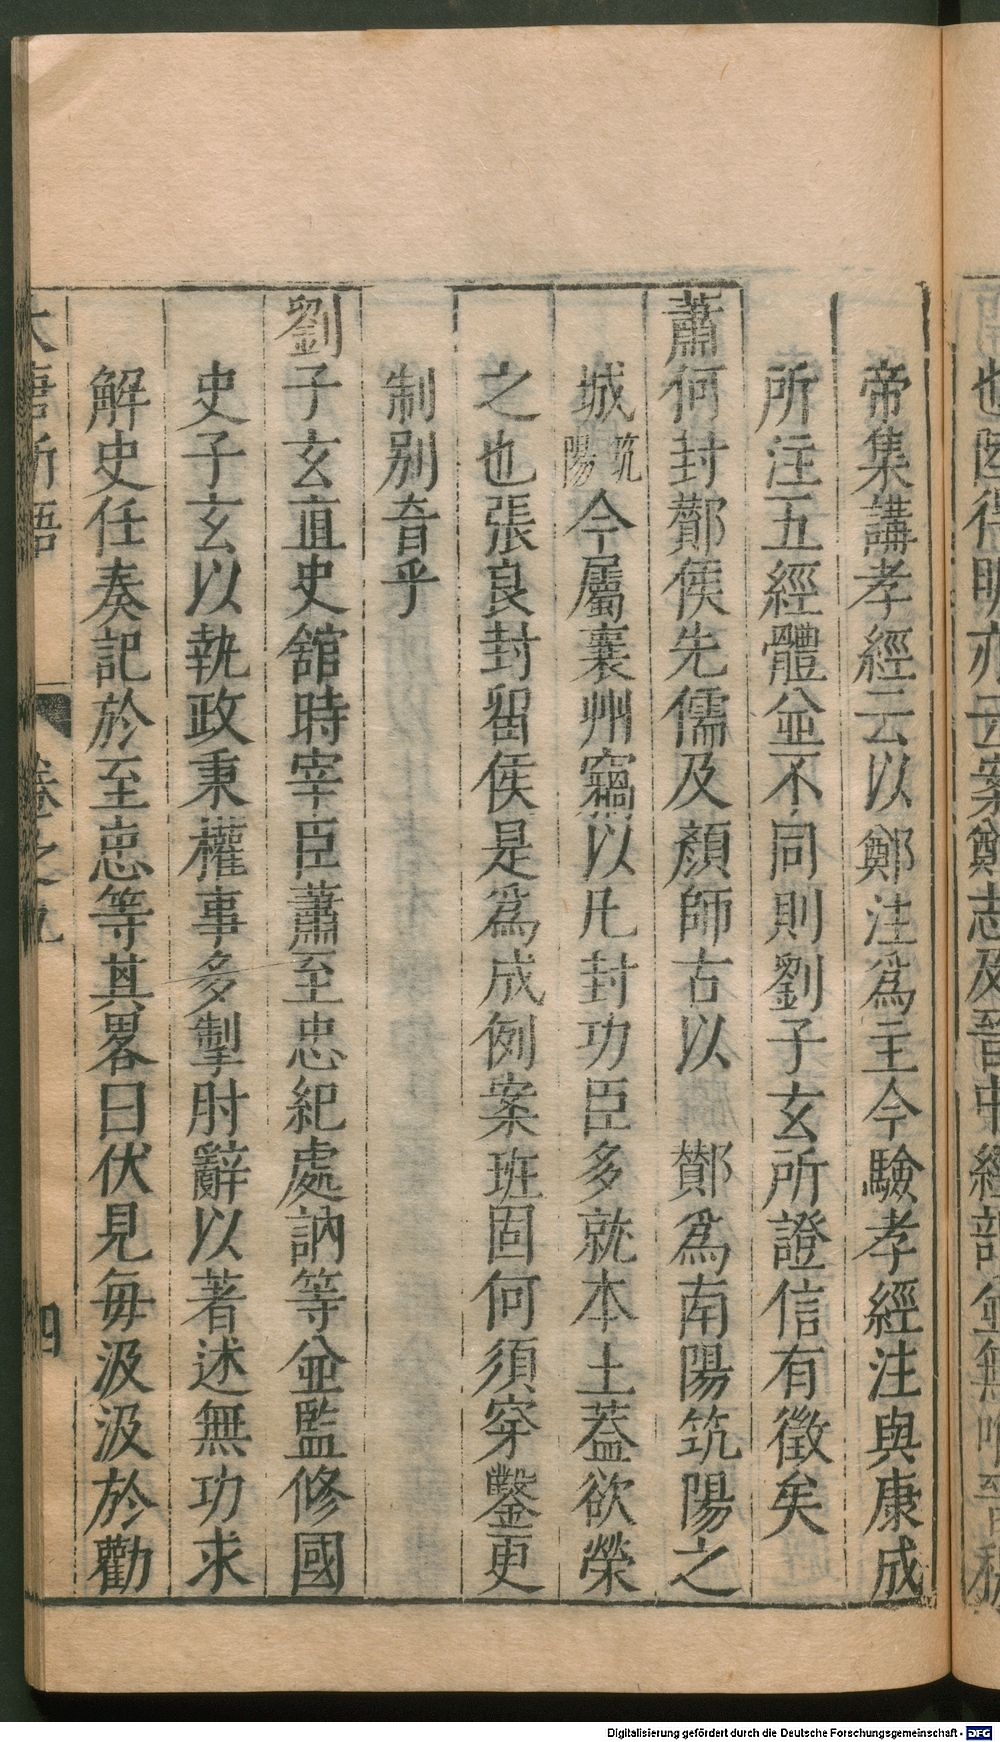 也陸得明亦云案鄭志及晉中經部並無
帝集講孝經云以鄭注爲主今驗孝經注與康成
所注五經體並不同則劉子玄所證信有徵矣
蕭何封酇侯先儒及顏師古以　酇爲南陽筑陽之
城筑陽今屬襄州竊以凡封功臣多就本土蓋欲榮
之也張良封留侯是爲成例案班固何須穿鑿更
制别音乎
劉子玄直史舘時宰臣蕭至忠紀處訥等並監修國
史子玄以執政秉權事多掣肘辭以著述無功求
解史任奏記於至忠等其畧曰伏見每汲汲於勸
大唐新語　卷之五　四
Digitalisierung gefördert durch die Deutsche Forschungsgemeinschaft - DFG